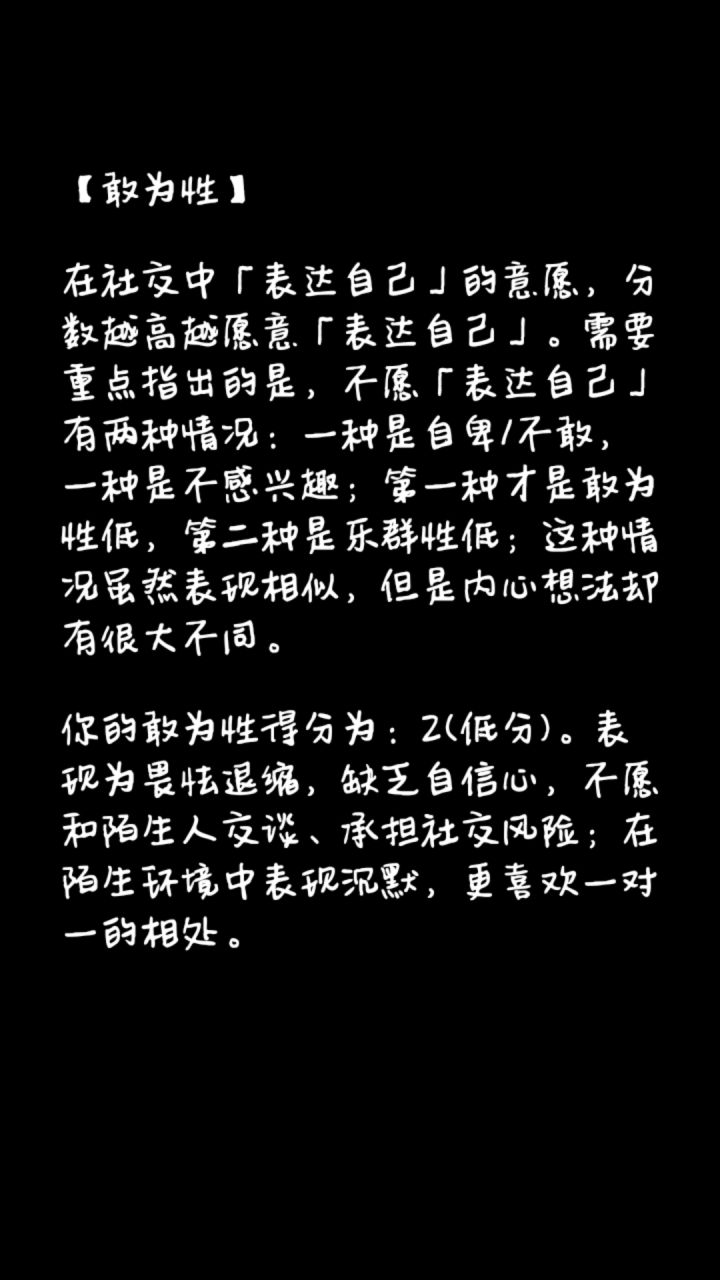 【敢为性】
在社交中「表达自己」的意愿，分
数越高越愿意「表达自己」。需要
重点指出的是，不愿「表达自己」
有两种情况：一种是自卑/不敢，
一种是不感兴趣；第一种才是敢为
性低，第二种是乐群性低；这种情
况虽然表现相似，但是内心想法却
有很大不同。
你的敢为性得分为：2(低分)。表
现为畏怯退缩，缺乏自信心，不愿
和陌生人交谈、承担社交风险；在
陌生环境中表现沉默，更喜欢一对
一的相处。